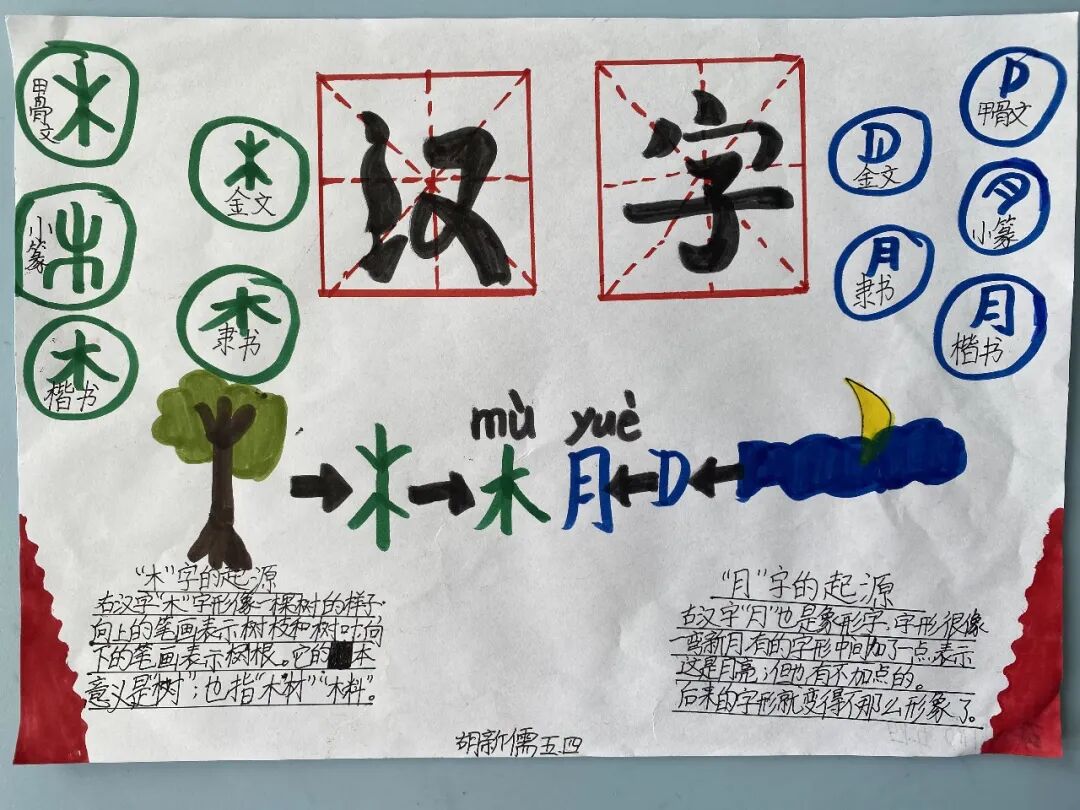 汉字
木
甲骨文
木
金文
木
小篆
木
隶书
木
楷书
月
甲骨文
月
金文
月
小篆
月
隶书
月
楷书
mù yuè
木 月
"木"字的起源
古汉字"木"字形像一棵树的样子
向上的笔画表示树枝和树叶,向
下的笔画表示树根。它的本
意义是"树";也指"木材""木料"。
"月"字的起源
古汉字"月"也是象形字,字形很像
一弯新月.有的字形中间加了一点,表示
这是月亮;但也有不加点的。
后来的字形就变得不那么形象了。
胡新儒五四